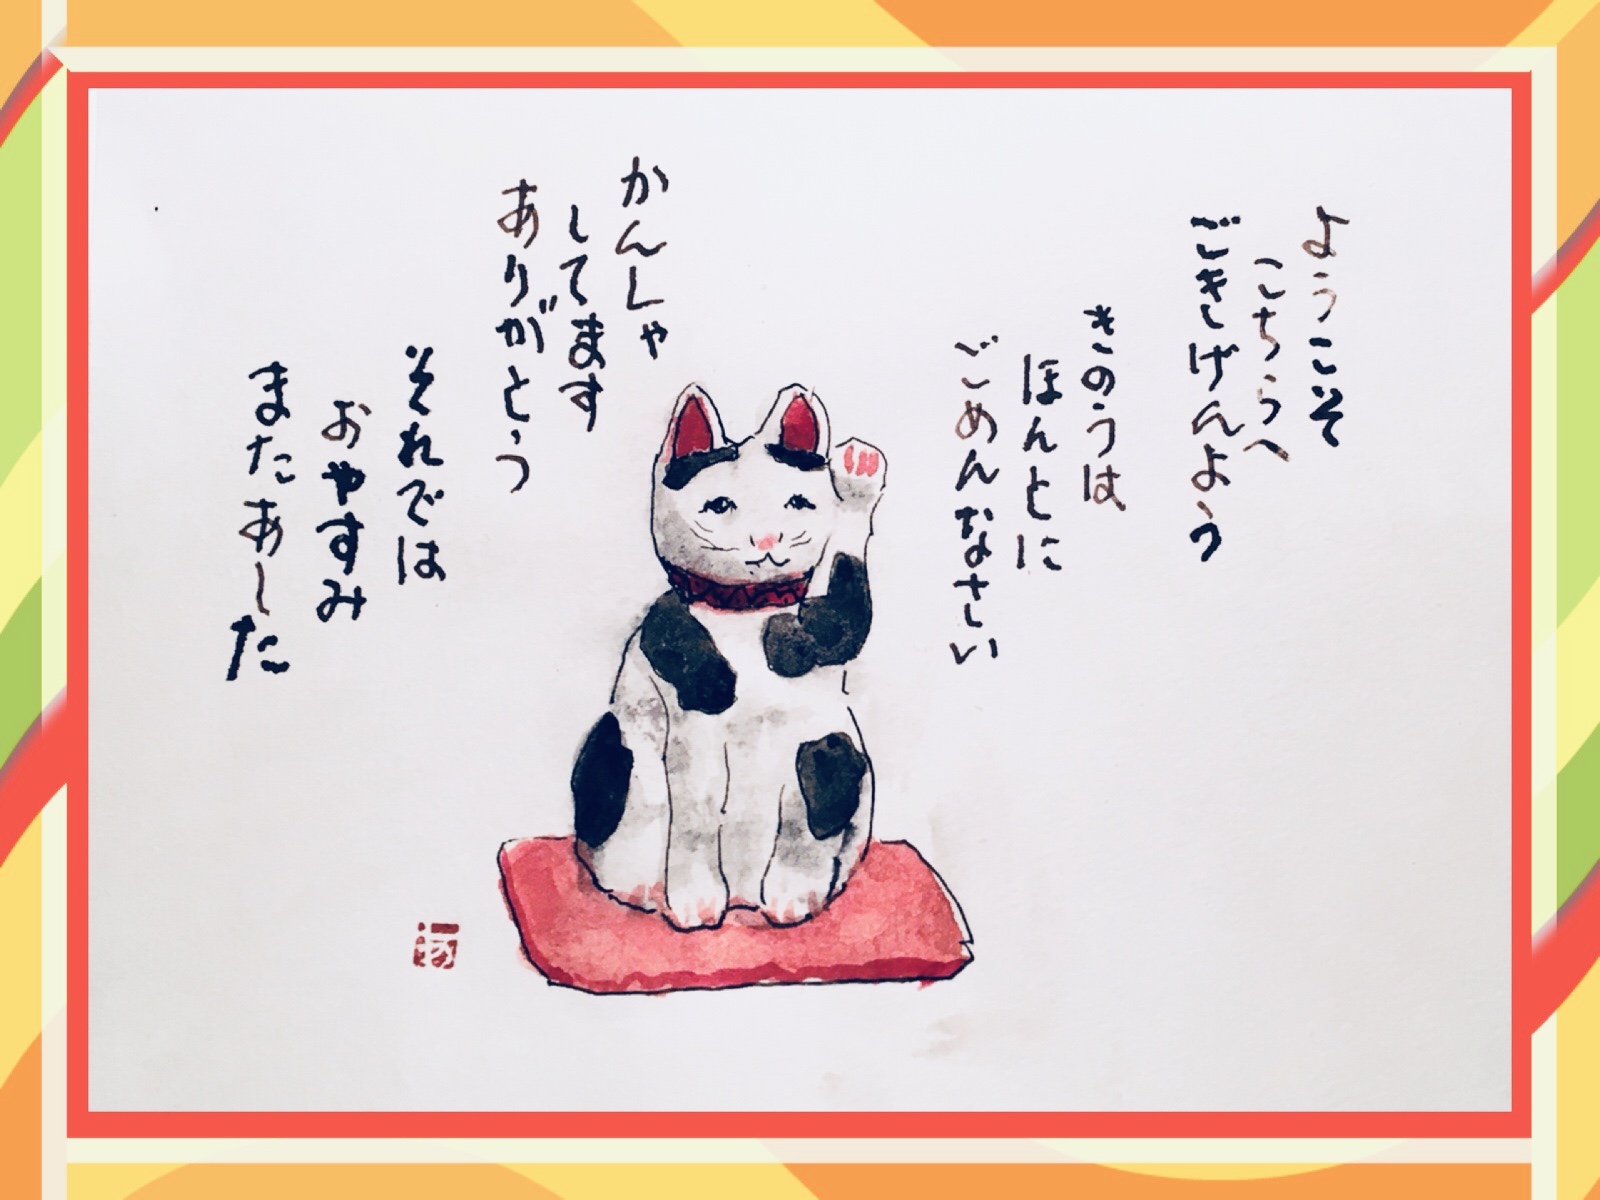 ようこそ
こちらへ
ごきげんよう
きのうは
ほんとに
ごめんなさい
かんしゃ
してます
ありがとう
それでは
おやすみ
またあした